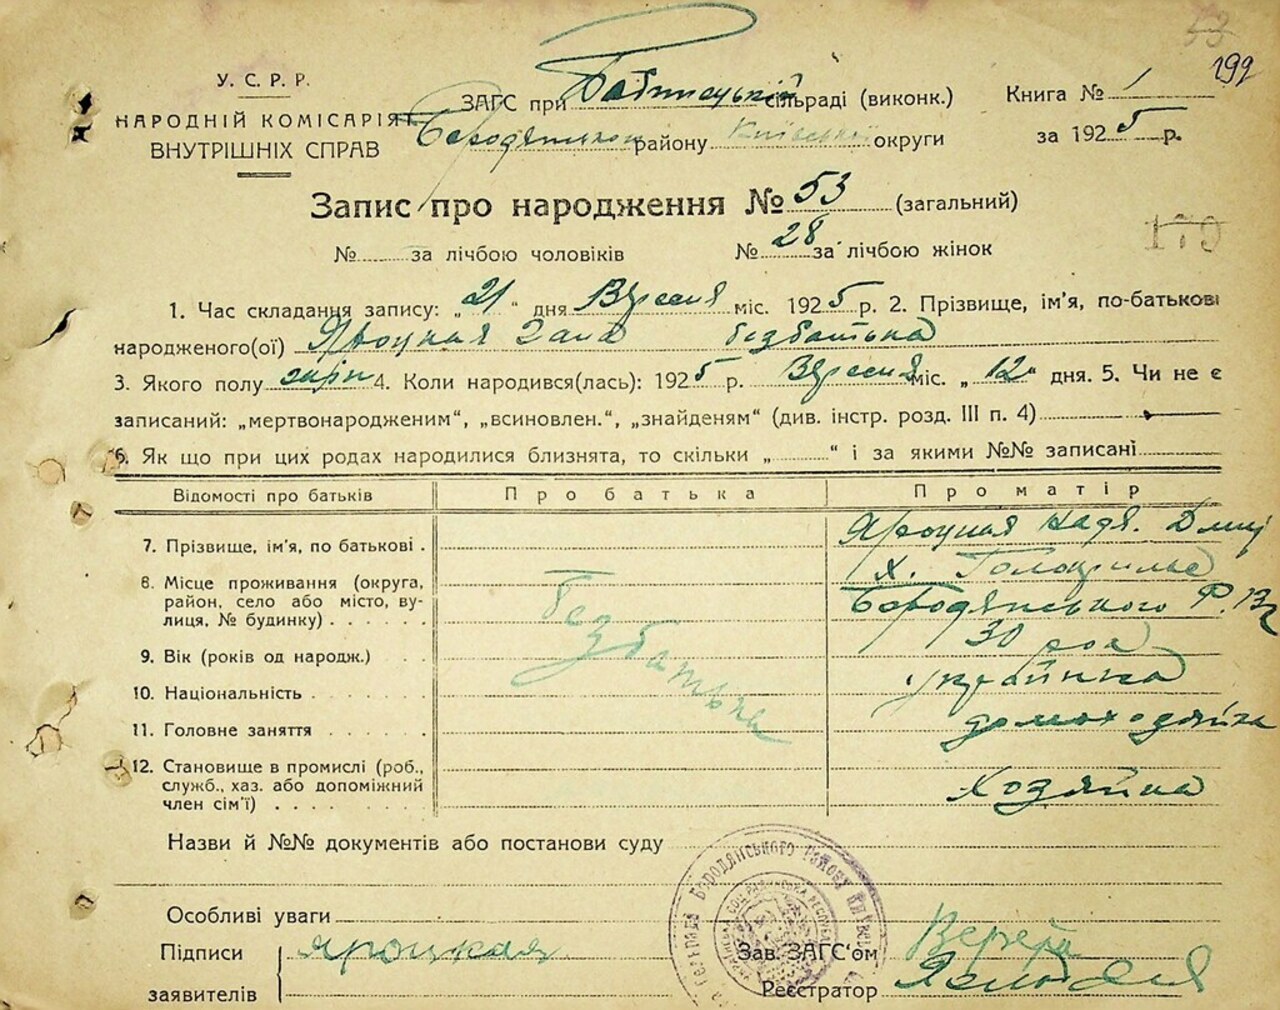 53
199
У. С. Р. Р.
НАРОДНІЙ КОМІСАРІЯТ
ВНУТРІШНІХ СПРАВ
ЗАГС при сільраді (виконк.)
району Київської округи
Книга № 1
за 1925 р.
Запис про народження № 53 (загальний)
179
№ за лічбою чоловіків № 28 за лічбою жінок
1. Час складання запису: „21“ дня Вересня міс. 1925 р. 2. Прізвище, ім’я, по-батькові
народженого(ої) Яроцкая безбатька
3. Якого полу 4. Коли народився(лась): 1925 р. Вересня міс. „12“ дня. 5. Чи не є
записаний: „мертвонародженим“, „всиновлен.“, „знайденям“ (див. інстр. розд. III п. 4)
6. Як що при цих родах народилися близнята, то скільки „ “ і за якими №№ записані
Відомості про батьків Про батька Про матір
7. Прізвище, ім’я, по батькові . Яроцкая Надя. Дмит
8. Місце проживання (округа, район, село або місто, вулиця, № будинку) . . . . . безбатька х. Бородянського Р.
9. Вік (років од народж.) . . 30 рок
10. Національність . . . . . . українка
11. Головне заняття . . . . . домоходяйка
12. Становище в промислі (роб., служб., хаз. або допоміжний член сім’ї) . . . . . . . . Хозяйка
Назви й №№ документів або постанови суду
Особливі уваги
Підписи
заявителів
яроцкая
Зав. ЗАГС‘ом
Реєстратор
Бородянського району